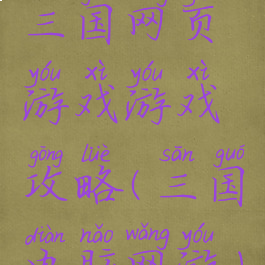 三国网页
yóu xì yóu xì
游戏游戏
gōng lüè sān guó
攻略(三国
diàn nǎo wǎng yóu
电脑网游)